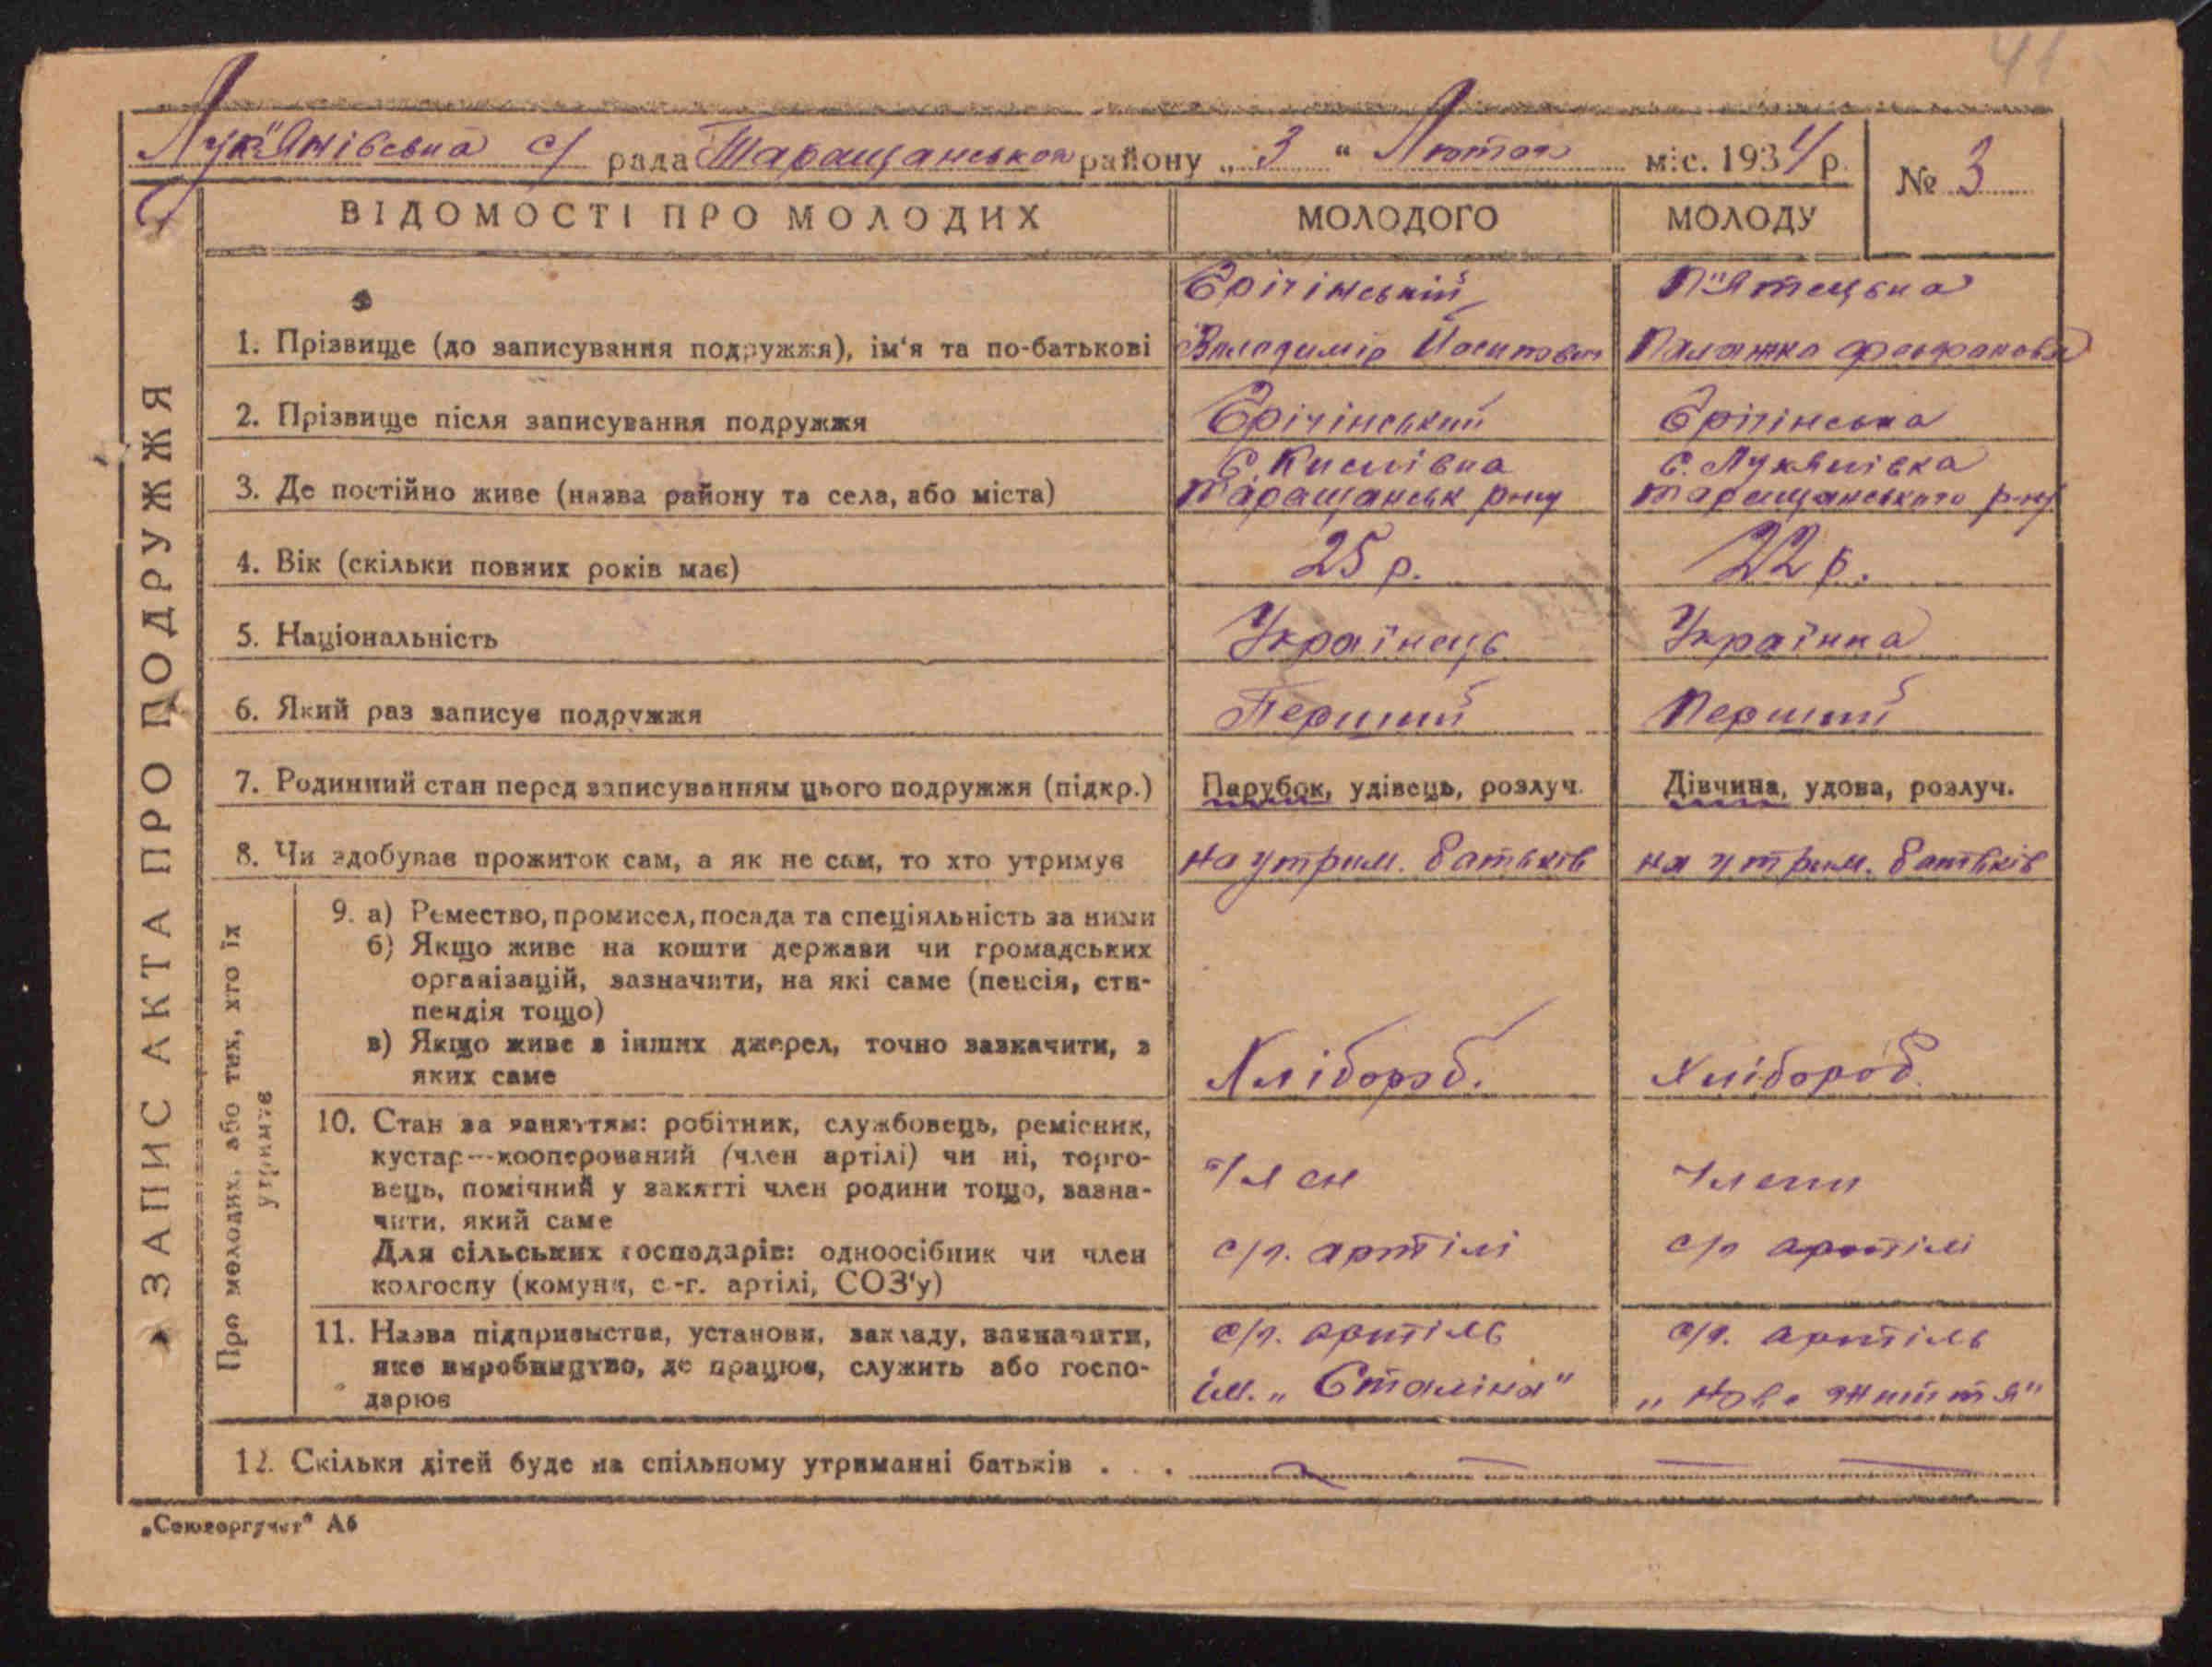 41
Лук"янівська с/ рада Таращанської району „ 3 “ Лютого міс. 1934 р.
№ 3
ВІДОМОСТІ ПРО МОЛОДИХ МОЛОДОГО МОЛОДУ
ЗАПИС АКТА ПРО ПОДРУЖЖЯ
Єрігінський П"ятецька
1. Прізвище (до записування подружжя), ім'я та по-батькові Володимір Йосипович Палажка Феофанова
2. Прізвище після записування подружжя Єрігінський Єрігінська
с. Лукянівка
3. Де постійно живе (назва району та села, або міста) Таращанськ р-ну Таращанського р-ну
4. Вік (скільки повних років має) 25 р. 22 р.
5. Національність Українець Українка
6. Який раз записує подружжя Перший Перший
7. Родинний стан перед записуванням цього подружжя (підкр.) Парубок, удівець, розлуч. Дівчина, удова, розлуч.
8. Чи здобував прожиток сам, а як не сам, то хто утримує на утрим. батьків на утрим. батьків
Про молодих, або тих, хто їх
утримує
9. а) Ремество, промисел, посада та спеціяльність за ними
б) Якщо живе на кошти держави чи громадських
організацій, зазначити, на які саме (пенсія, сти-
пендія тощо)
в) Якщо живе з інших джерел, точно зазначити, з
яких саме Хлібороб. Хлібороб.
10. Стан за заняттям: робітник, службовець, ремісник,
кустар—кооперований (член артілі) чи ні, торго-
вець, помічний у занятті член родини тощо, зазна- Член Член
чити, який саме
Для сільських господарів: одноосібник чи член с/г. артілі с/г артілі
колгоспу (комуни, с.-г. артілі, СОЗ'у)
11. Назва підприємства, установи, закладу, зазначити, с/г. артіль с/г. артіль
яке виробництво, де працює, служить або госпо- ім. „Сталіна" „Нове життя"
дарює
12. Скільки дітей буде на спільному утриманні батьків . . .
„Союзоргучет" А6